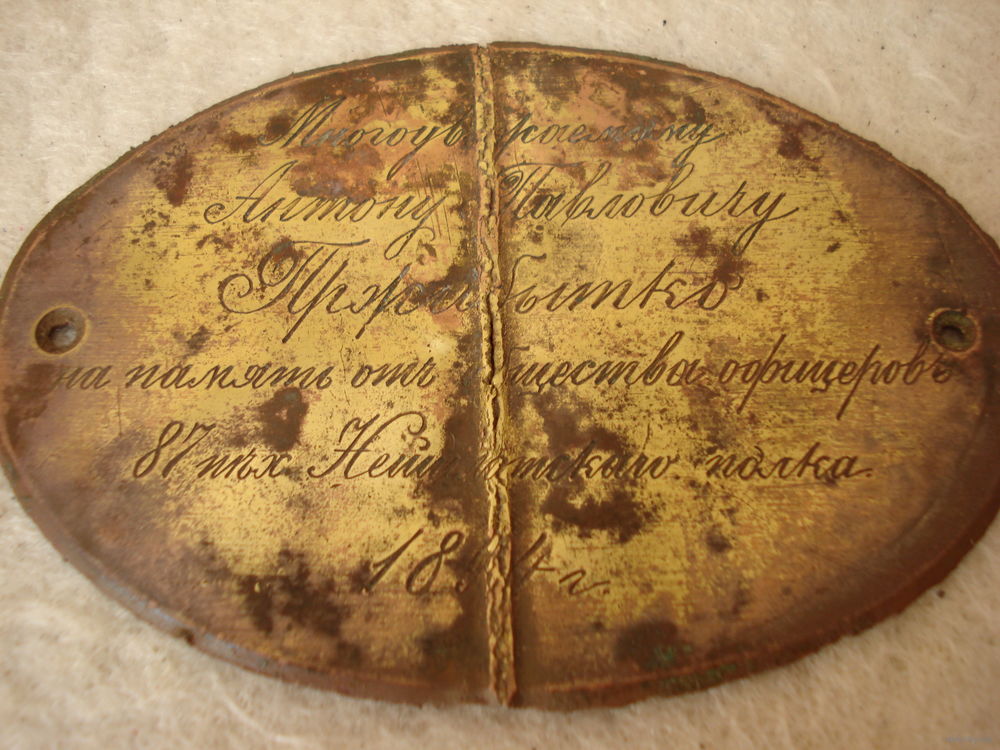 Многоуважаемому
Антону Павловичу
Пржибытко
на память отъ общества офицеровъ
87 пѣх Нейшлотскаго полка.
г.